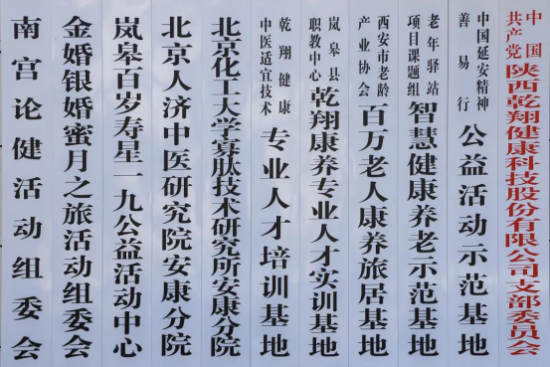 中国
共产党
陕西乾翔健康科技股份有限公司支部委员会
中国延安精神
善易行
公益活动示范基地
老年驿站
项目课题组
智慧健康养老示范基地
西安市老龄
产业协会
百万老人康养旅居基地
岚皋县
职教中心
乾翔康养专业人才实训基地
乾翔健康
中医适宜技术
专业人才培训基地
北京化工大学寡肽技术研究所安康分院
北京人济中医研究院安康分院
岚皋百岁寿星一九公益活动中心
金婚银婚蜜月之旅活动组委会
南宫论健活动组委会